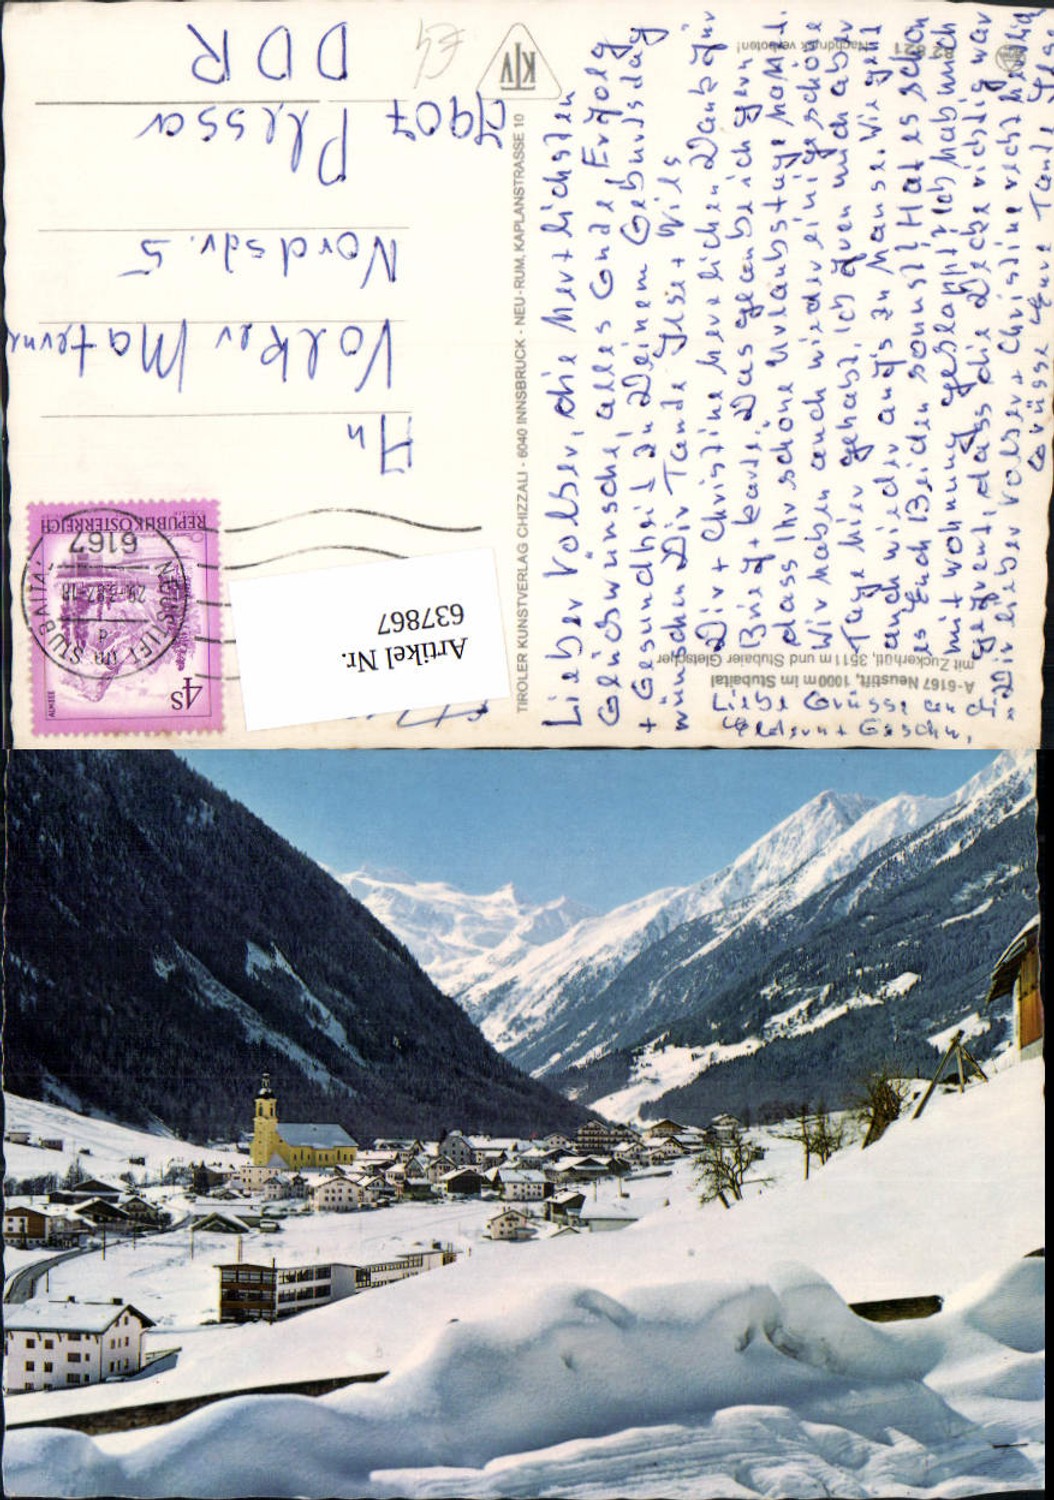 Lieber Volker, die herzlichsten
Glückwünsche, alles Gute Erfolg
+ Gesundheit zu Deinem Geburtsdag
wünschen Dir Tande Gisi + Wils
Dir + Christine herzlichen Dank für
Brief + Karte. Das glaube ich gern
dass Ihr schöne Urlaubstage hattet.
Wir haben auch wieder einige schöne
Tage hier gehabt, ich freu mich aber
auch wieder auf's zu Hause. Wie geht
es Euch Beiden sonst? Hat es schon
mit Wohnung geklappt? Ich hab mich
gefreut, dass die Decke richtig war
Dir lieber Volker + Christine recht herzlig
Grüsse Eure Tande
Liebe Grüsse an d
Eldern + Geschw.
A-6167 Neustift, 1000 m im Stubaital
mit Zuckerhütl, 3511 m und Stubaier Gletscher
Nachdruck verboten!
621
KTV
TIROLER KUNSTVERLAG CHIZZALI - 6040 INNSBRUCK - NEU-RUM, KAPLANSTRASSE 10
REPUBLIK ÖSTERREICH
ALMSEE
4S
6167
NEUSTIFT IM STUBAITAL
Artikel Nr.
637867
An
Volker Materne
Nordstr. 5
7907 Plessa
DDR